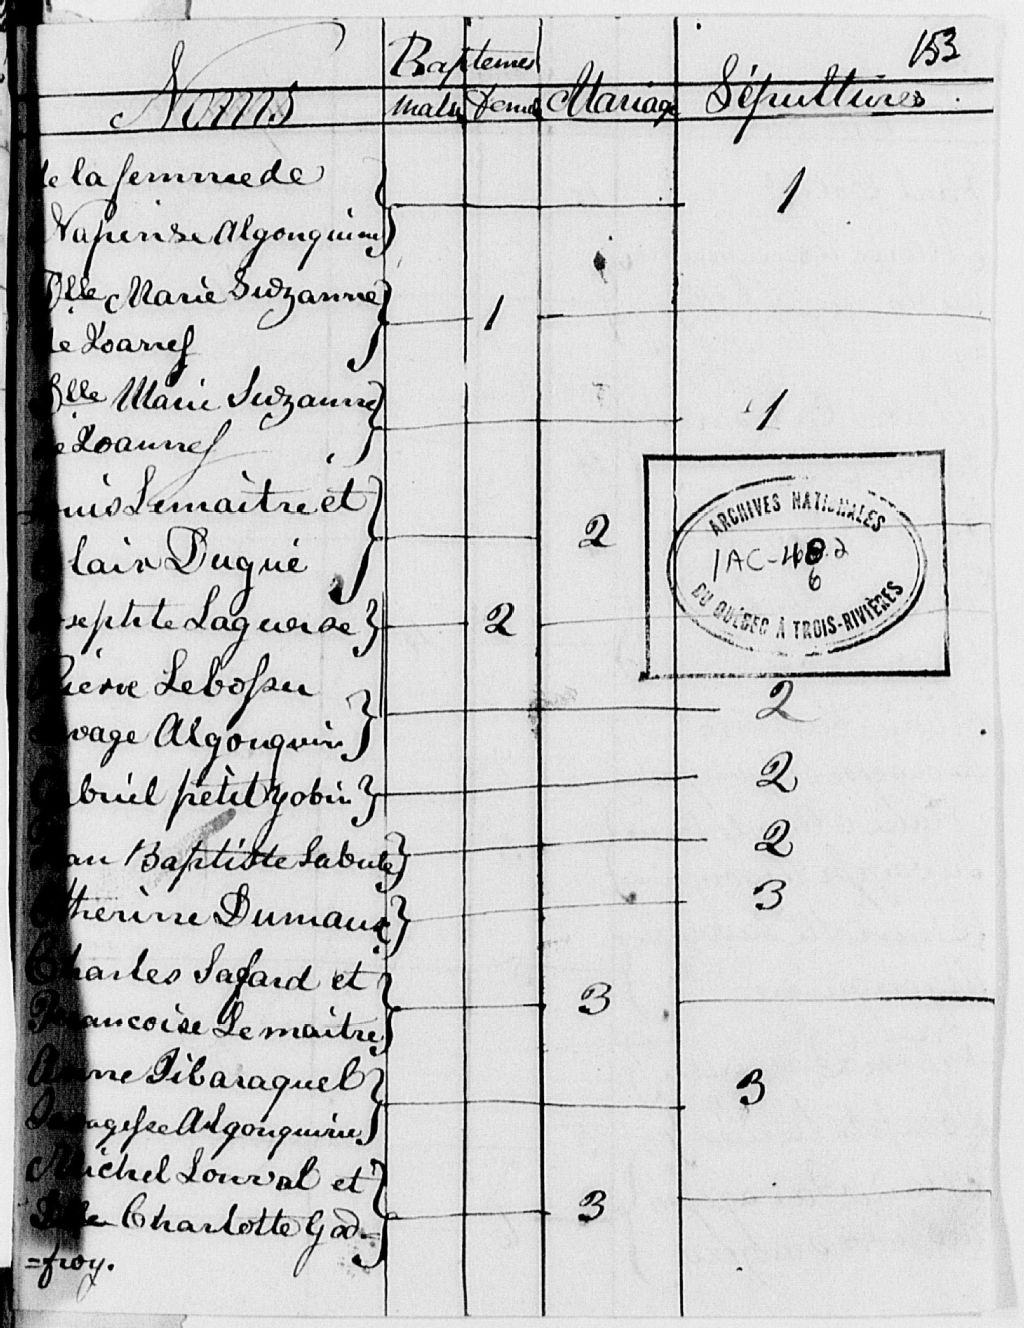 153
Noms Baptemes Mariage Sépultures
mal feme
de la femme de
Naperise Algonquine 1
Dlle Marie Suzanne
de Xoannes 1
Dlle Marie Suzanne
de Xoannes 1
Louis Lemaitre et
Claire Dugué 2
Josephte Laguerse 2
Pierre Lebossu
Sauvage Algonquin 2
Gabriel petit yobin 2
Jean Baptiste Sabute 2
Catherine Dumaux 3
Charles Safard et
Francoise Lemaitre 3
Anne Pibaraquel
Sauvagesse Algonquine 3
Michel Lourval et
Dlle Charlotte God= 3
=froy.
ARCHIVES NATIONALES
1AC-48.2
6
DU QUÉBEC À TROIS-RIVIÈRES